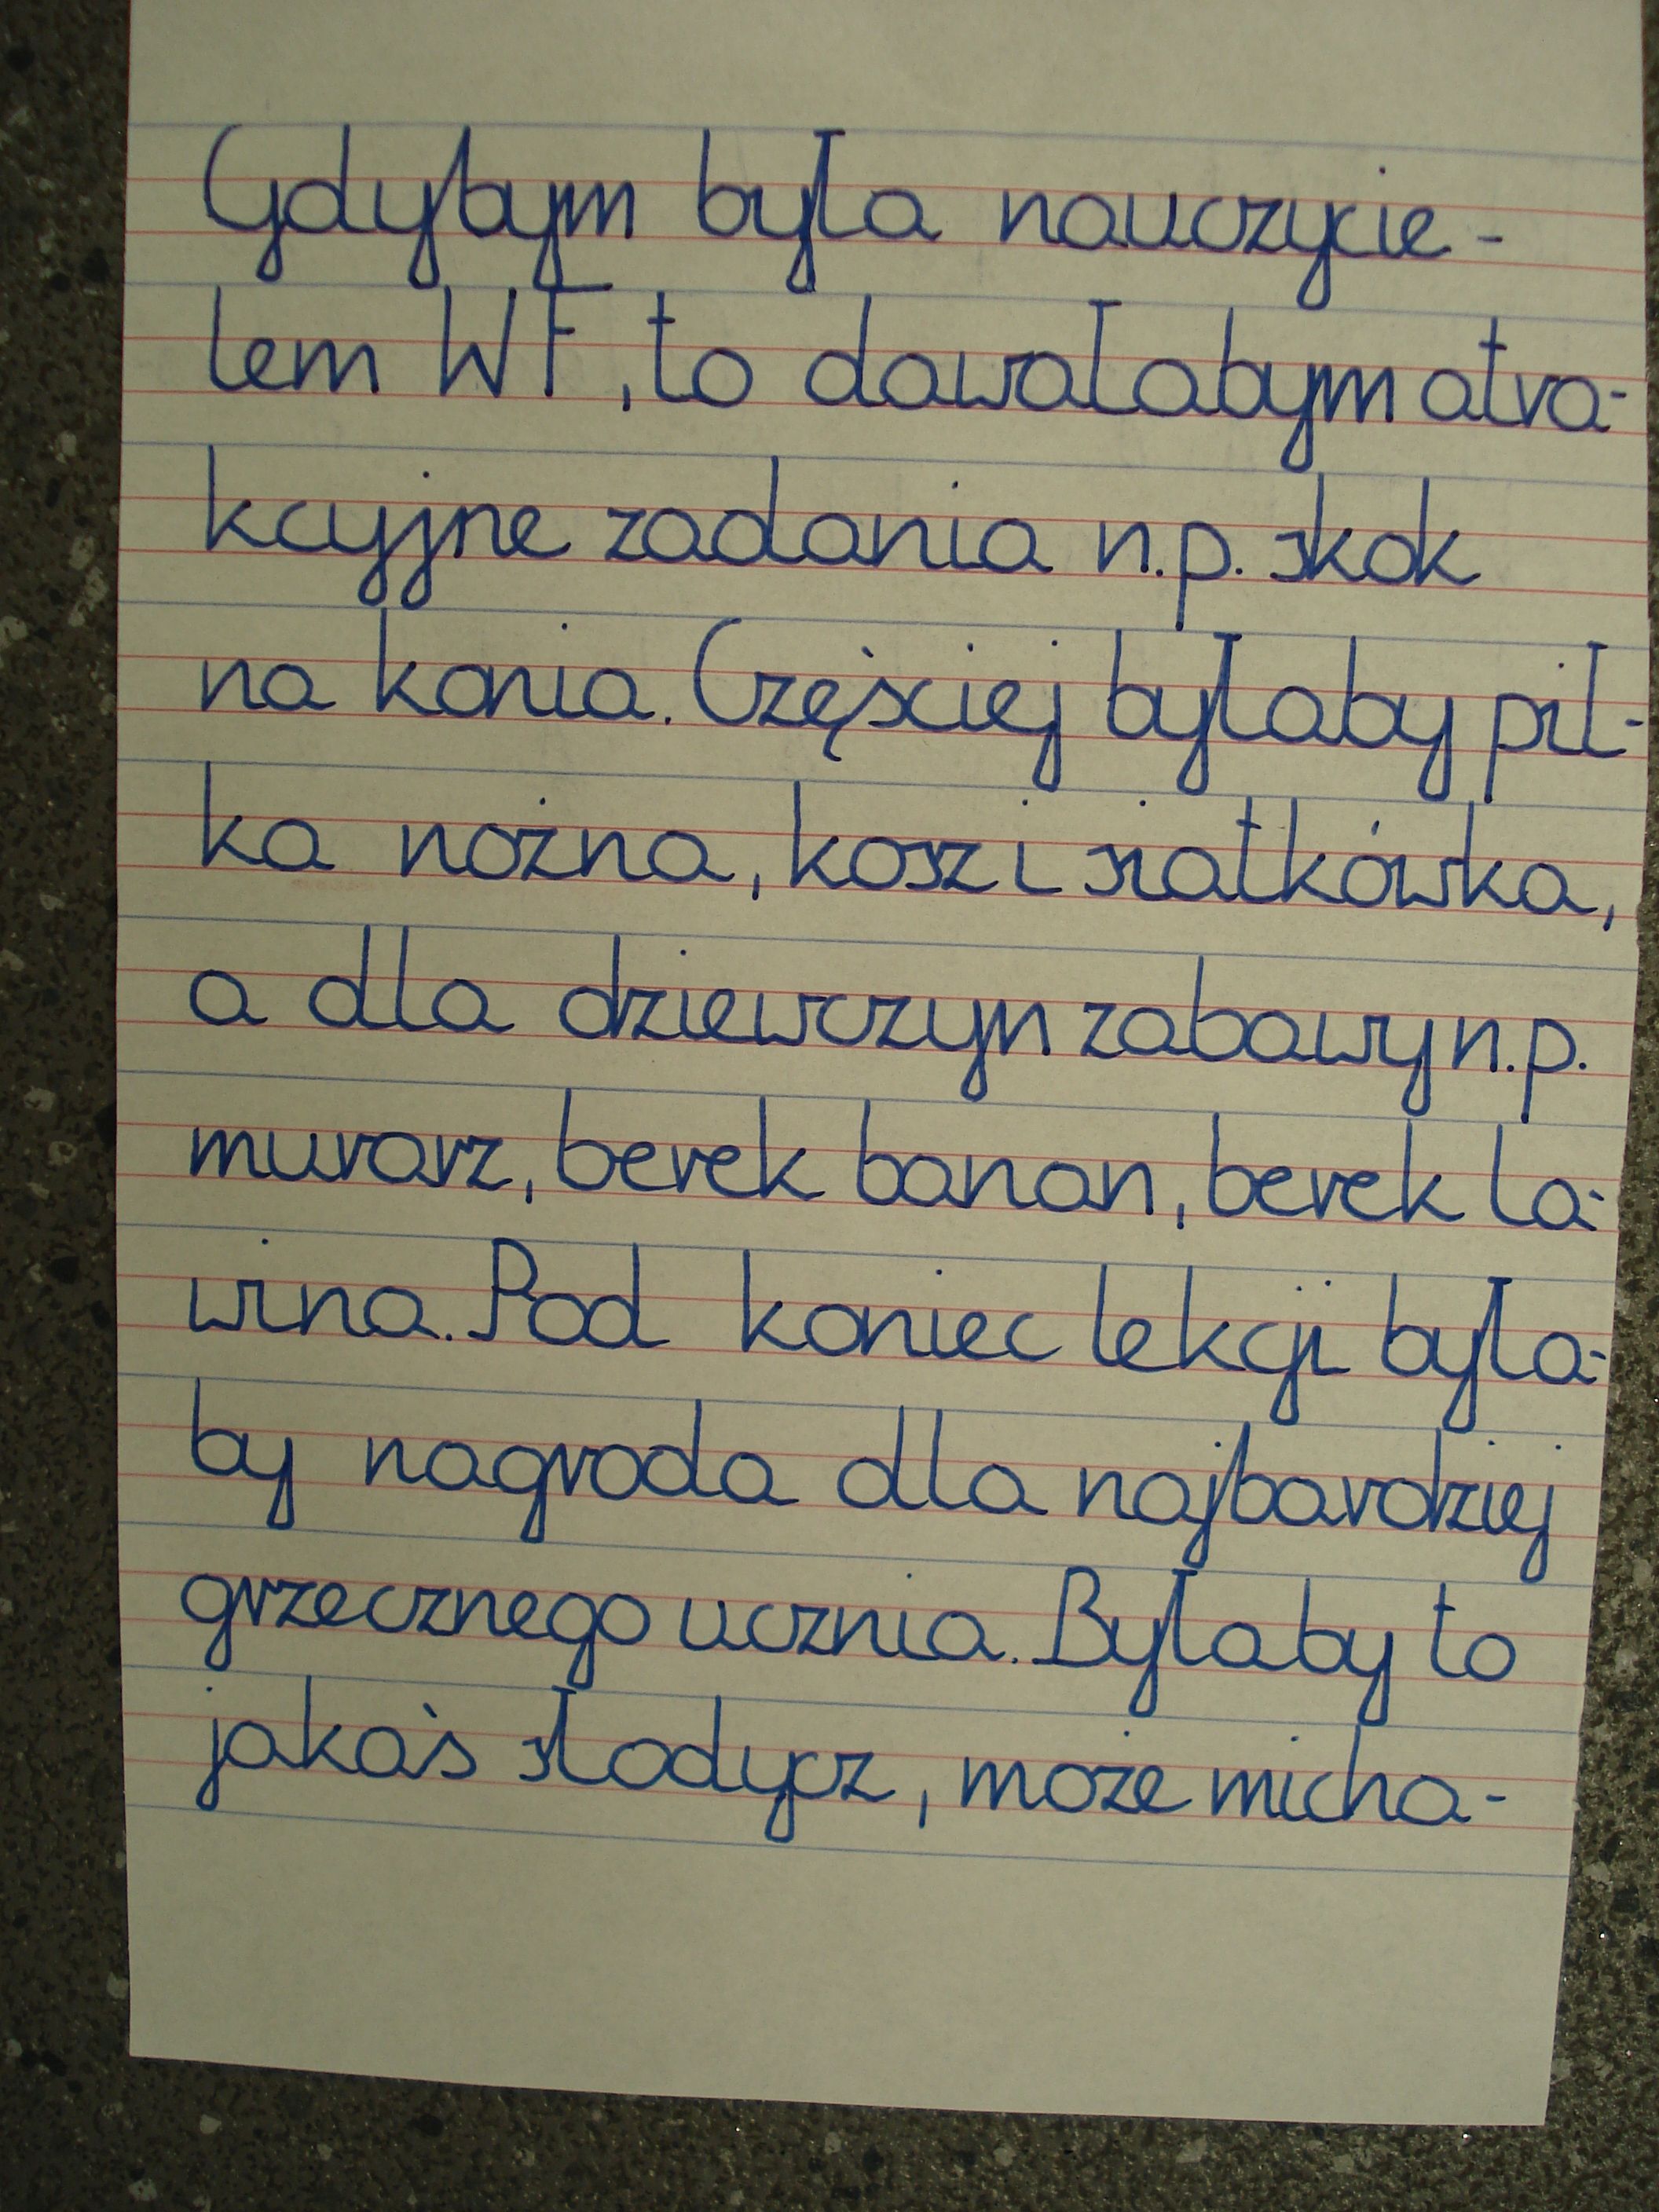 Gdybym była nauczycie-
lem WF, to dawałabym atra-
kcyjne zadania n.p. skok
na konia. Częściej byłaby pił-
ka nożna, kosz i siatkówka,
a dla dziewczyn zabawy n.p.
murarz, berek banan, berek la-
wina. Pod koniec lekcji była-
by nagroda dla najbardziej
grzecznego ucznia. Byłaby to
jakaś słodycz, może micha-